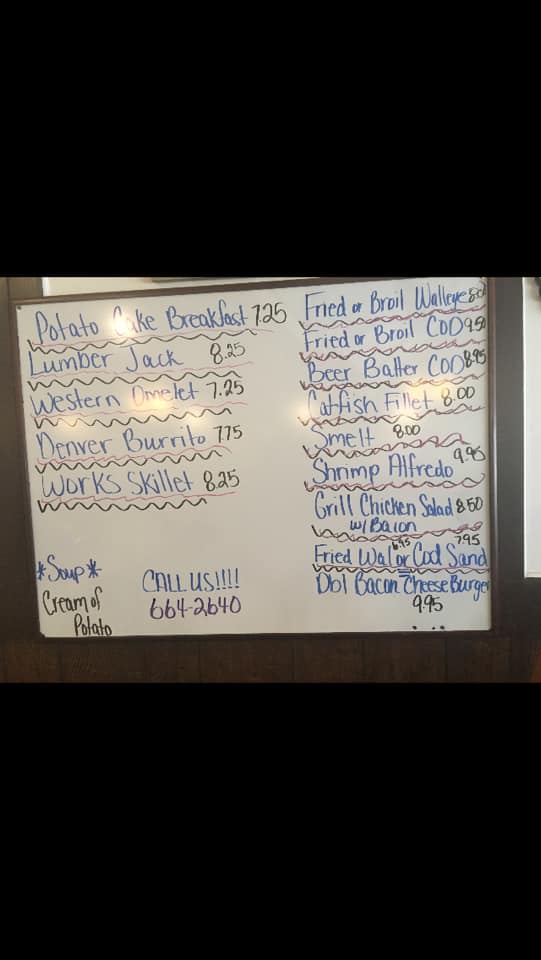 Potato Cake Breakfast 7.25
Lumber Jack 8.25
Western Omelet 7.25
Denver Burrito 7.75
Works Skillet 8.25
*Soup*
Cream of
Potato
CALL US!!!!
664-2640
Fried or Broil Walleye
Fried or Broil COD 9.50
Beer Batter COD 8.95
Catfish Fillet 8.00
Smelt 8.00
Shrimp Alfredo 9.95
Grill Chicken Salad 8.50
w/ Bacon
6.95 7.95
Fried Wal or Cod Sand
Dbl Bacon Cheese Burger
9.95